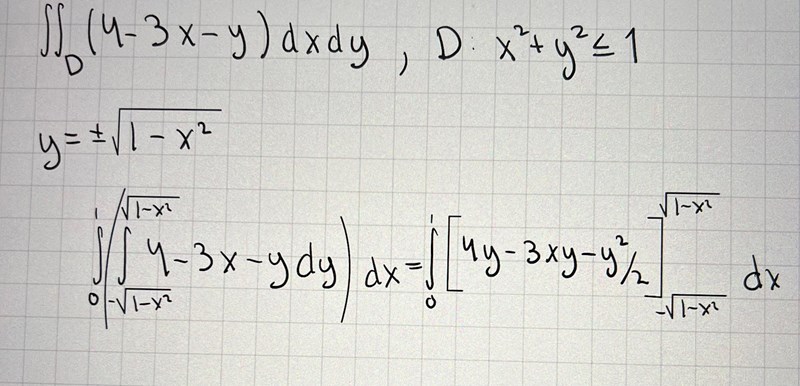 ∬_D (4-3x-y) dxdy , D: x²+y² ≤ 1
y = ±√(1-x²)
∫₀¹ (∫_{-√(1-x²)}^{√(1-x²)} 4-3x-y dy) dx = ∫₀¹ [4y-3xy-y²/2]_{-√(1-x²)}^{√(1-x²)} dx